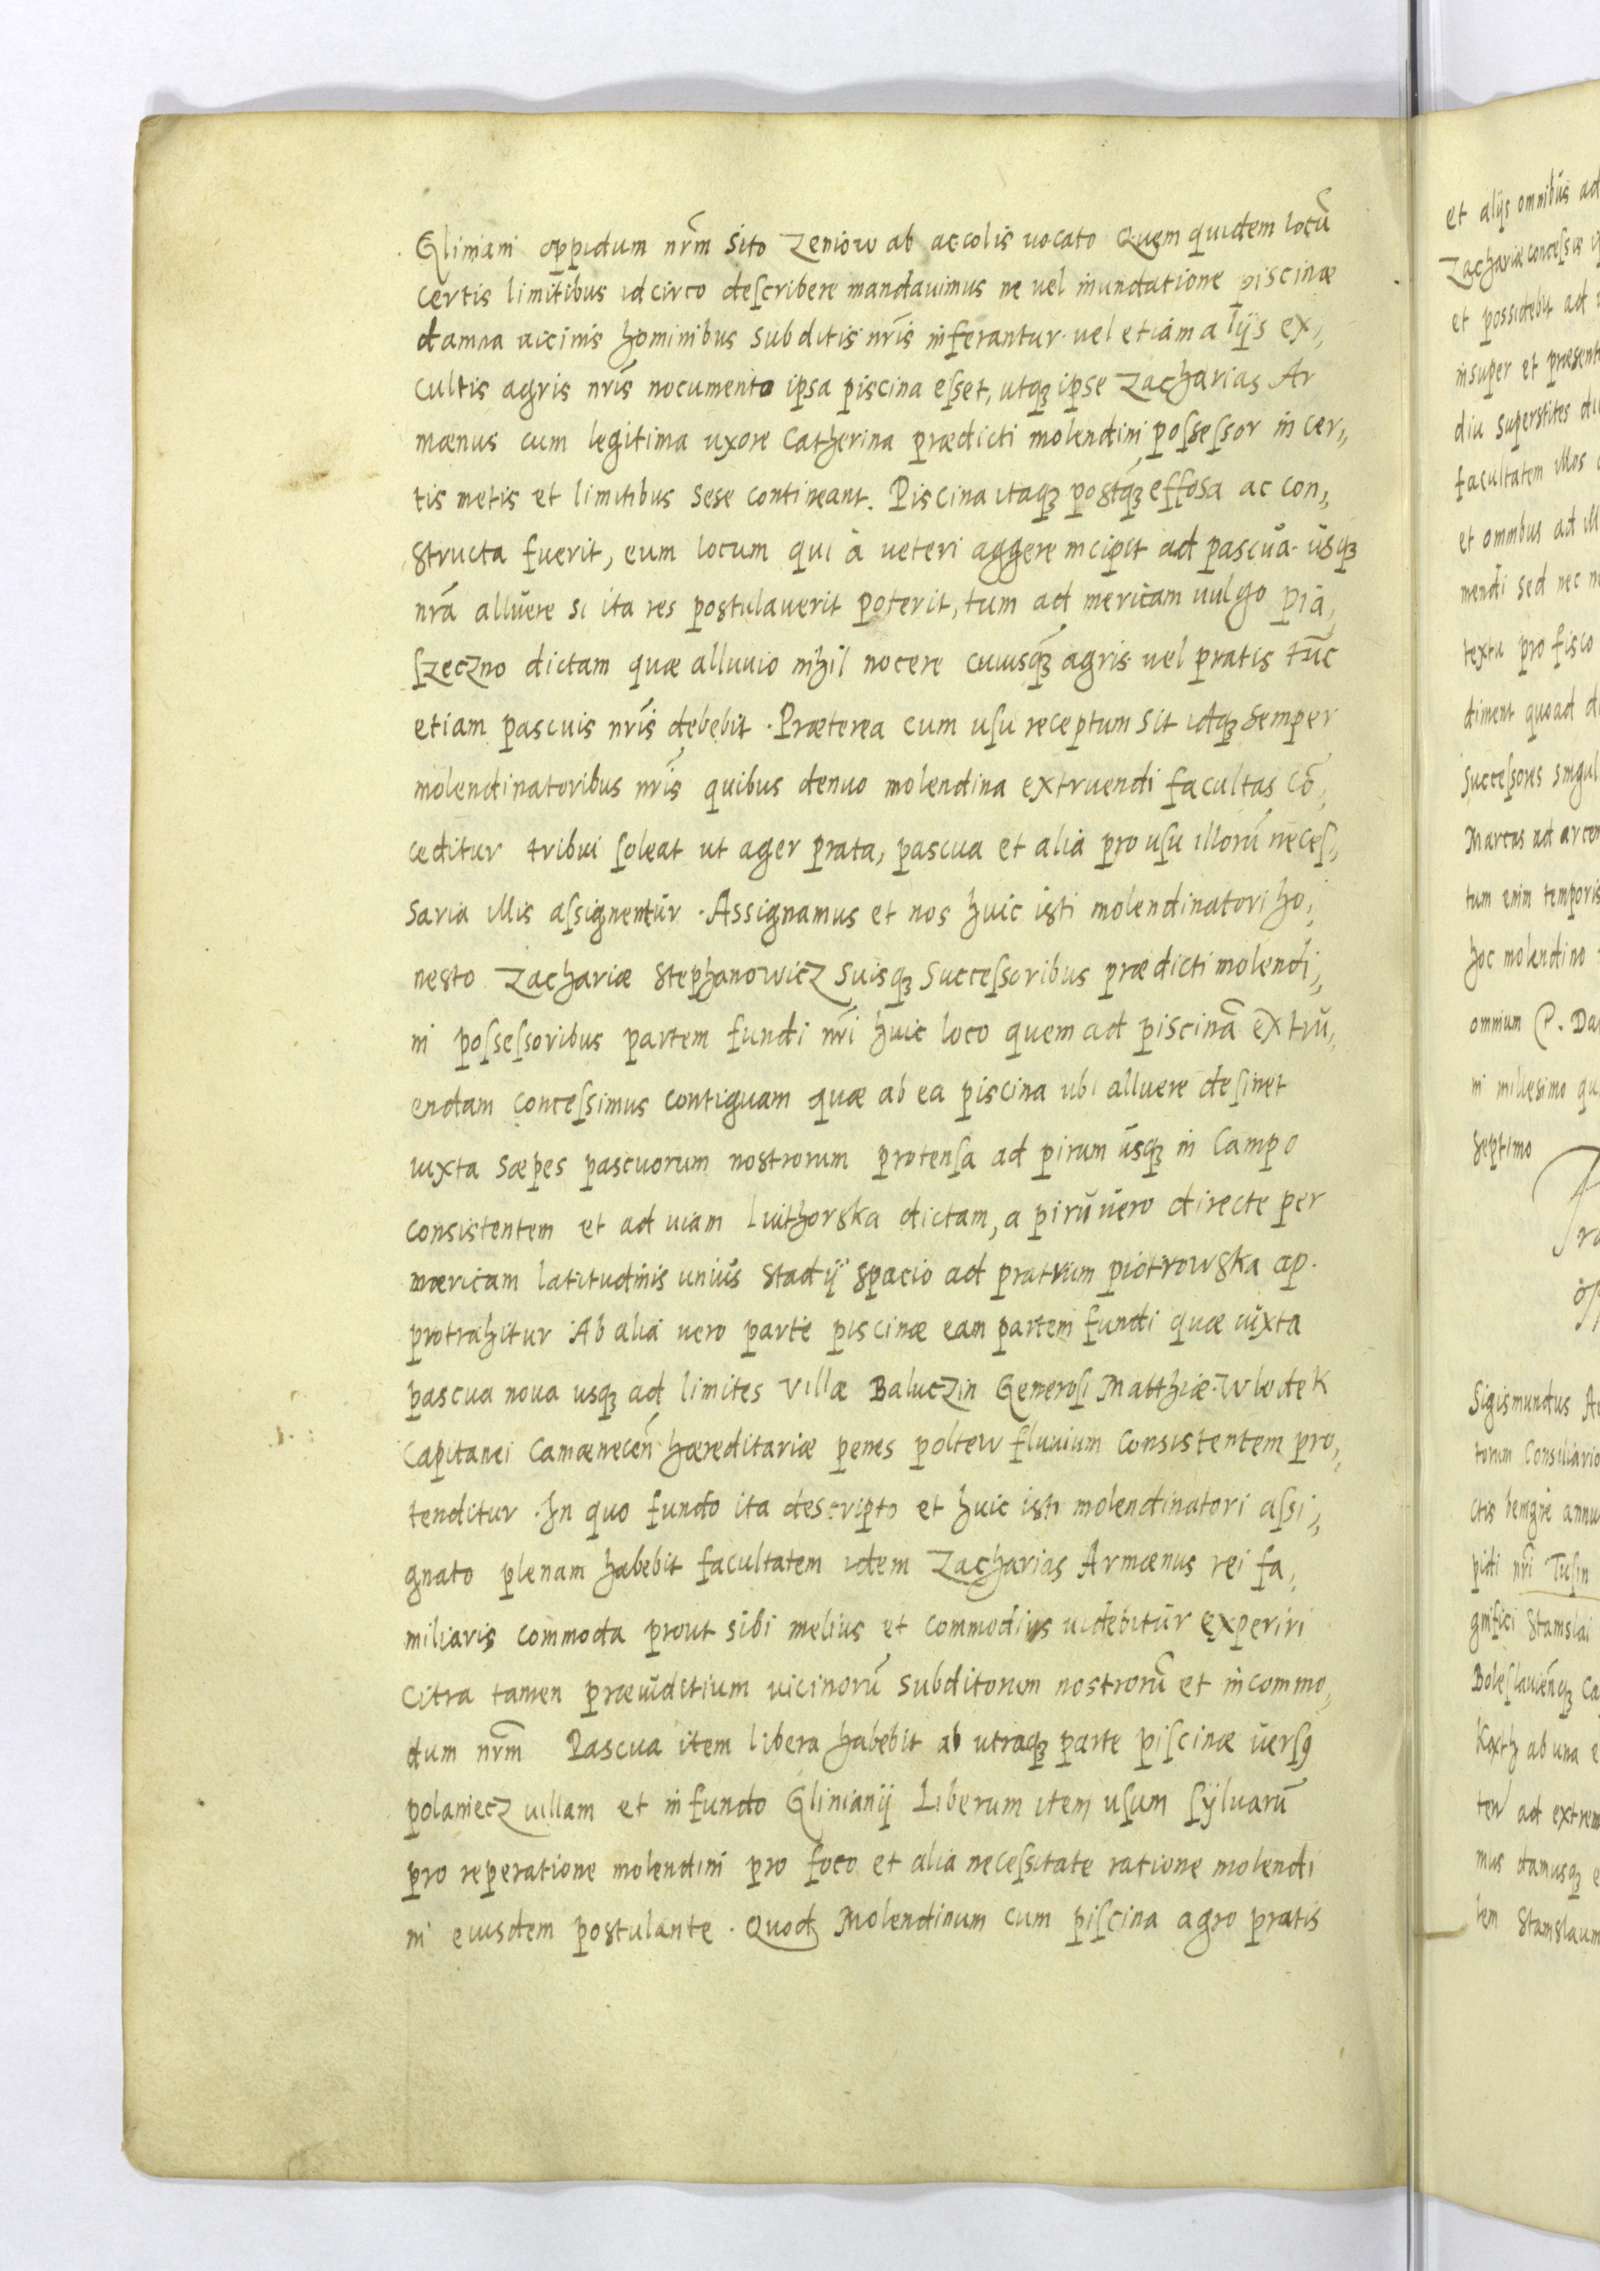 Gliniani oppidum nr̃m sito Zeniow ab accolis uocato Quem quidem locũ
certis limitibus idcirco deſcribere mandauimus ne uel inundatione piscinæ
damna uicinis hominibus subditis nr̃is inferantur uel etiam alijs ex,
cultis agris nr̃is nocumento ipsa piscina eſset, utqꝫ ipse Zacharias Ar
mænus cum legitima uxore Catherina prædicti molendini poſseſsor in cer,,
tis metis et limitibus sese contineant. Piscina itaqꝫ postqꝫ̃ effosa ac con,
structa fuerit, eum locum qui à ueteri aggere incipit ad pascua usqꝫ
nr̃a alluere si ita res postulauerit poterit, tum ad mericam uulgo Pia,
ſzeczno dictam quæ alluuio nihil nocere cuiusqꝫ̃ agris uel pratis tũc
etiam pascuis nr̃is debebit. Præterea cum uſu receptum sit idqꝫ semper
molendinatoribus nr̃is quibus denuo molendina extruendi facultas cõ,
ceditur tribui ſoleat ut ager prata, pascua et alia pro uſu illorũ neceſ,
saria illis aſsignentur. Assignamus et nos huic isti molendinatori ho,
nesto Zachariæ Stephanowicz suisqꝫ succeſsoribus prædicti molendi,,
ni poſseſsoribus partem fundi nr̃i huic loco quem ad piscinã extrũ,
endam conceſsimus contiguam quæ ab ea piscina ubi alluere deſinet
iuxta sæpes pascuorum nostrorum protenſa ad pirum usqꝫ in campo
consistentem et ad uiam liuithorska dictam, a pirũ uero directe per
mæricam latitudinis unius stadij spacio ad pratrum piotrowska ap.
protrahitur Ab alia uero parte piscinæ eam partem fundi quæ iuxta
pascua noua usqꝫ ad limites Villæ Baluczin Generoſi Matthiæ Wlodek
Capitanei Camænecen̄ hæreditariæ penes poltew fluuium consistentem pro,
tenditur. In quo fundo ita descripto et huic isti molendinatori aſsi,,
gnato plenam habebit facultatem idem Zacharias Armænus rei fa,
miliaris commoda prout sibi melius et commodius uidebitur experiri
Citra tamen præiuditium uicinorũ subditorum nostrorũ et incommo,
dum nr̃m Pascua item libera habebit ab utraqꝫ parte piſcinæ uerſꝯ
polaniecz uillam et in fundo Glinianij Liberum item uſum ſyluarũ
pro reperatione molendini pro foco et alia neceſsitate ratione molendi
ni eiusdem postulante. Quod Molendinum cum piſcina agro pratis
et alijs omnibus ad
Zachariæ conceſsis
et possidebit ad
insuper et præsent
diu superstites
facultatem illos
et omnibus ad ill
mendi sed nec
textu pro fisco
diment quoad
succeſsores singul
Marcas ad arcem
tum enim temporis
hoc molendino
omnium P. Da
ni milesimo
septimo
Sigismundus
torum Consiliario
ctis benigne annu
pidi nr̃i Tuſin
gnifici Stanslai
Boleſlauien̄qꝫ Ca
Koxth ab una
tew ad extrem
mus damusqꝫ
tem Stanslaum